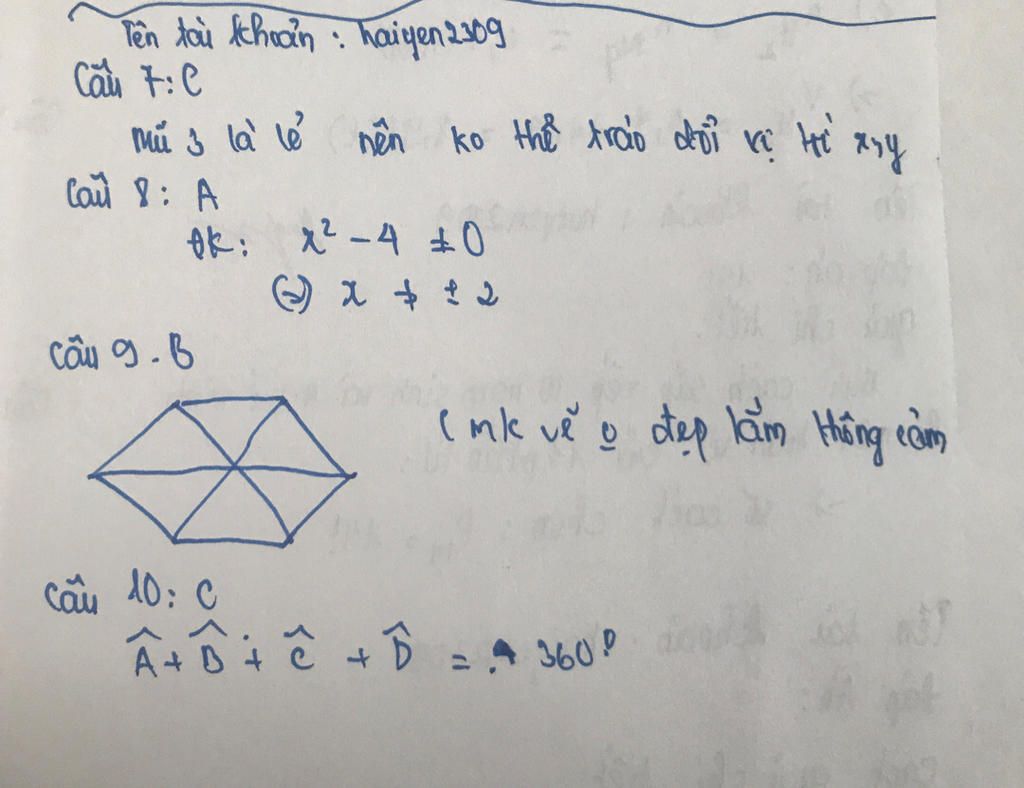 Tên tài khoản : haiyen2309
Câu 7: C
Mũ 3 là lẻ nên ko thể tráo đổi vị trí x, y
Câu 8: A
ĐK: x² - 4 ≠ 0
(=) x ≠ ± 2
Câu 9. B
( mk vẽ o đẹp lắm thông cảm
Câu 10: C
Â + B̂ + Ĉ + D̂ = 360°